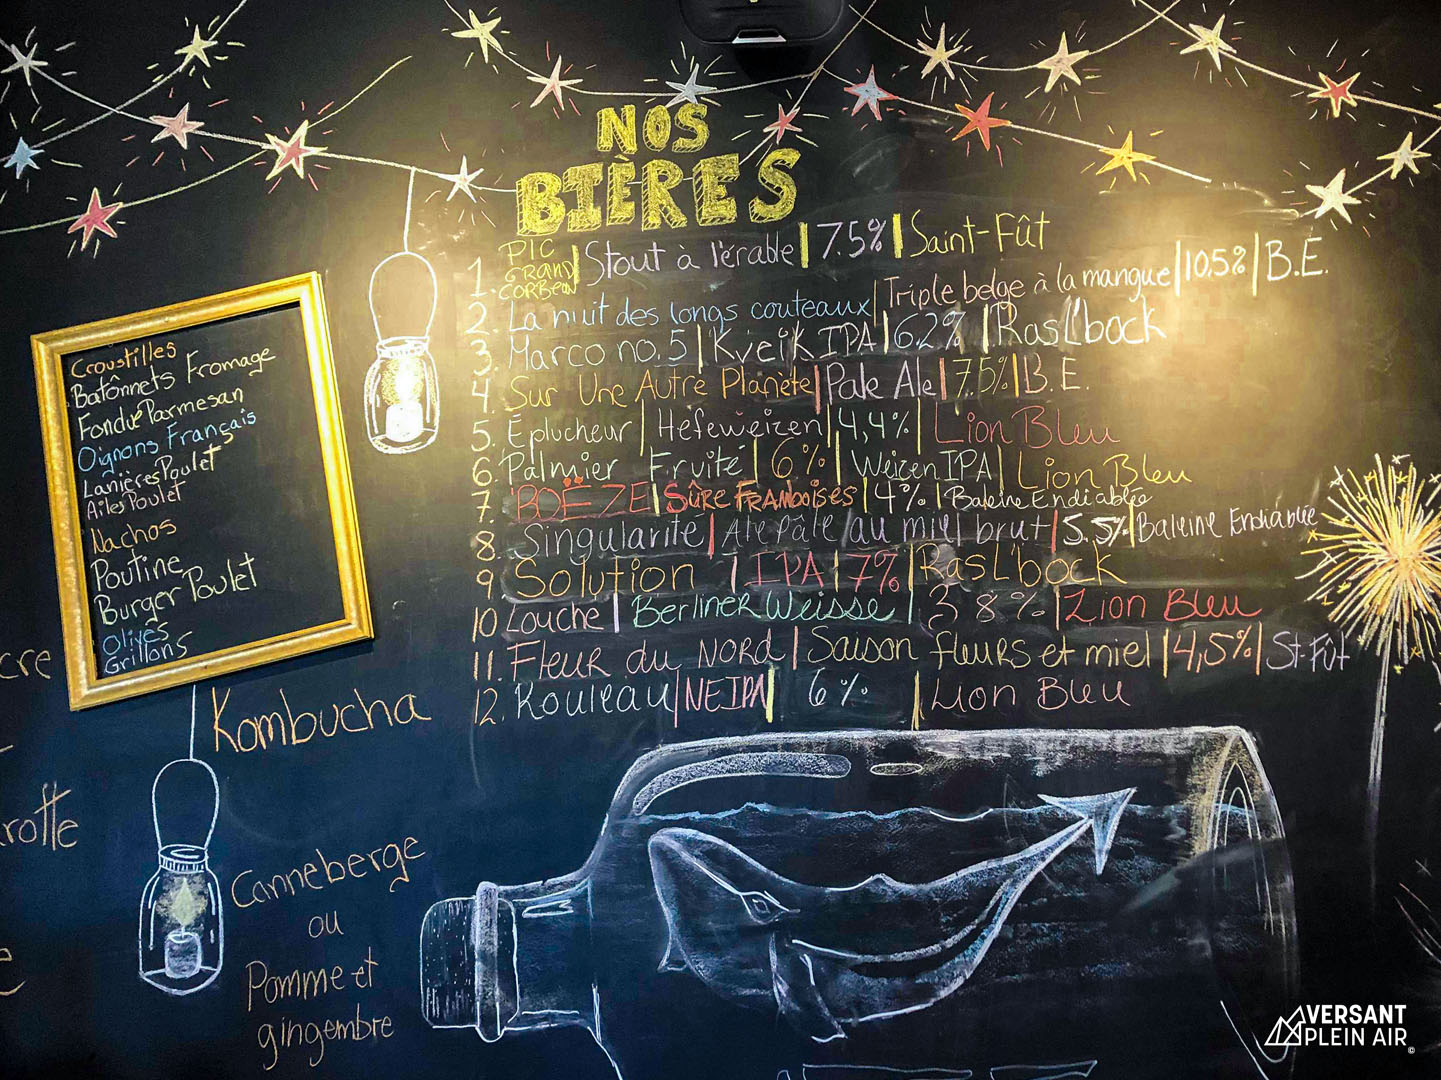 NOS
BIÈRES
1. PIC GRAND CORBEAU | Stout à l'érable | 7.5% | Saint-Fût
2. La nuit des longs couteaux | Triple belge à la mangue | 10.5% | B.E.
3. Marco no. 5 | Kveik IPA | 6.2% | Ras L'bock
4. Sur Une Autre Planète | Pale Ale | 7.5% | B.E.
5. Éplucheur | Hefeweizen | 4,4% | Lion Bleu
6. Palmier Fruité | 6% | Weizen IPA | Lion Bleu
7. BOËZE | Sûre Framboises | 4% | Baleine Endiablée
8. Singularité | Ale pâle au miel brut | 5.5% | Baleine Endiablée
9 Solution | IPA | 7% | Ras L'bock
10 Louche | Berliner Weisse | 3 8% | Lion Bleu
11. Fleur du Nord | Saison fleurs et miel | 4,5% | St-Fût
12. Rouleau | NEIPA | 6% | Lion Bleu
Croustilles
Batônnets Fromage
Fondue Parmesan
Oignons Français
Lanières Poulet
Ailes Poulet
Nachos
Poutine
Burger Poulet
Olives
Grillons
cre
rotte
Kombucha
Canneberge
ou
Pomme et
gingembre
VERSANT
PLEIN AIR
©